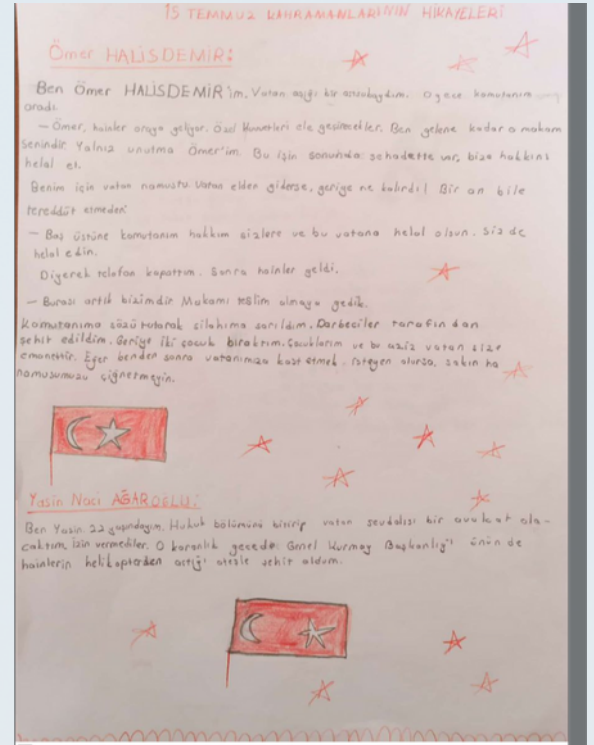 15 TEMMUZ KAHRAMANLARININ HİKAYELERİ
Ömer HALİSDEMİR:
Ben Ömer HALİSDEMİR'im. Vatan aşığı bir astsubaydım. O gece komutanım
aradı.
– Ömer, hainler oraya geliyor. Özel Kuvvetleri ele geçirecekler. Ben gelene kadar o makam
senindir. Yalnız unutma Ömer'im. Bu işin sonunda şehadette var, bize hakkını
helal et.
Benim için vatan namustu. Vatan elden giderse, geriye ne kalırdı! Bir an bile
tereddüt etmeden:
– Baş üstüne komutanım hakkım sizlere ve bu vatana helal olsun. Siz de
helal edin.
Diyerek telofon kapattım. Sonra hainler geldi.
– Burası artık bizimdir Makamı teslim almaya gedik.
Komutanıma sözü tutarak silahıma sarıldım. Darbeciler tarafından
şehit edildim. Geriye iki çocuk bıraktım. Çocuklarım ve bu aziz vatan size
emanettir. Eğer benden sonra vatanımıza kast etmek isteyen olursa, sakın ha
namusumuzu çiğnetmeyin.
Yasin Naci AĞAROĞLU:
Ben Yasin. 22 yaşındayım. Hukuk bölümünü bitirip vatan sevdalısı bir avukat ola-
caktım izin vermediler. O karanlık gecede Genel Kurmay Başkanlığı önün de
hainlerin helikopterden açtığı ateşle şehit oldum.